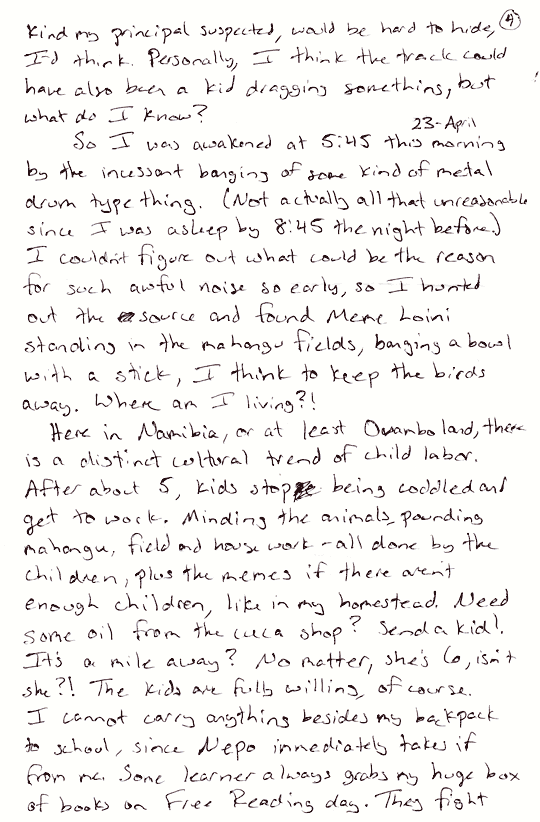 kind my principal suspected, would be hard to hide, 4
I'd think. Personally, I think the track could
have also been a kid dragging something, but
what do I know?
23-April
So I was awakened at 5:45 this morning
by the incessant banging of some kind of metal
drum type thing. (Not actually all that unreasonable
since I was asleep by 8:45 the night before.)
I couldn't figure out what could be the reason
for such awful noise so early, so I hunted
out the source and found Meme Loini
standing in the mahangu fields, banging a bowl
with a stick, I think to keep the birds
away. Where am I living?!
Here in Namibia, or at least Owamboland, there
is a distinct cultural trend of child labor.
After about 5, kids stop being coddled and
get to work. Minding the animals, pounding
mahangu, field and house work - all done by the
children, plus the memes if there aren't
enough children, like in my homestead. Need
some oil from the cuca shop? Send a kid!
It's a mile away? No matter, she's 6, isn't
she?! The kids are fully willing, of course.
I cannot carry anything besides my backpack
to school, since Nepo immediately takes it
from me. Some learner always grabs my huge box
of books on Free Reading day. They fight